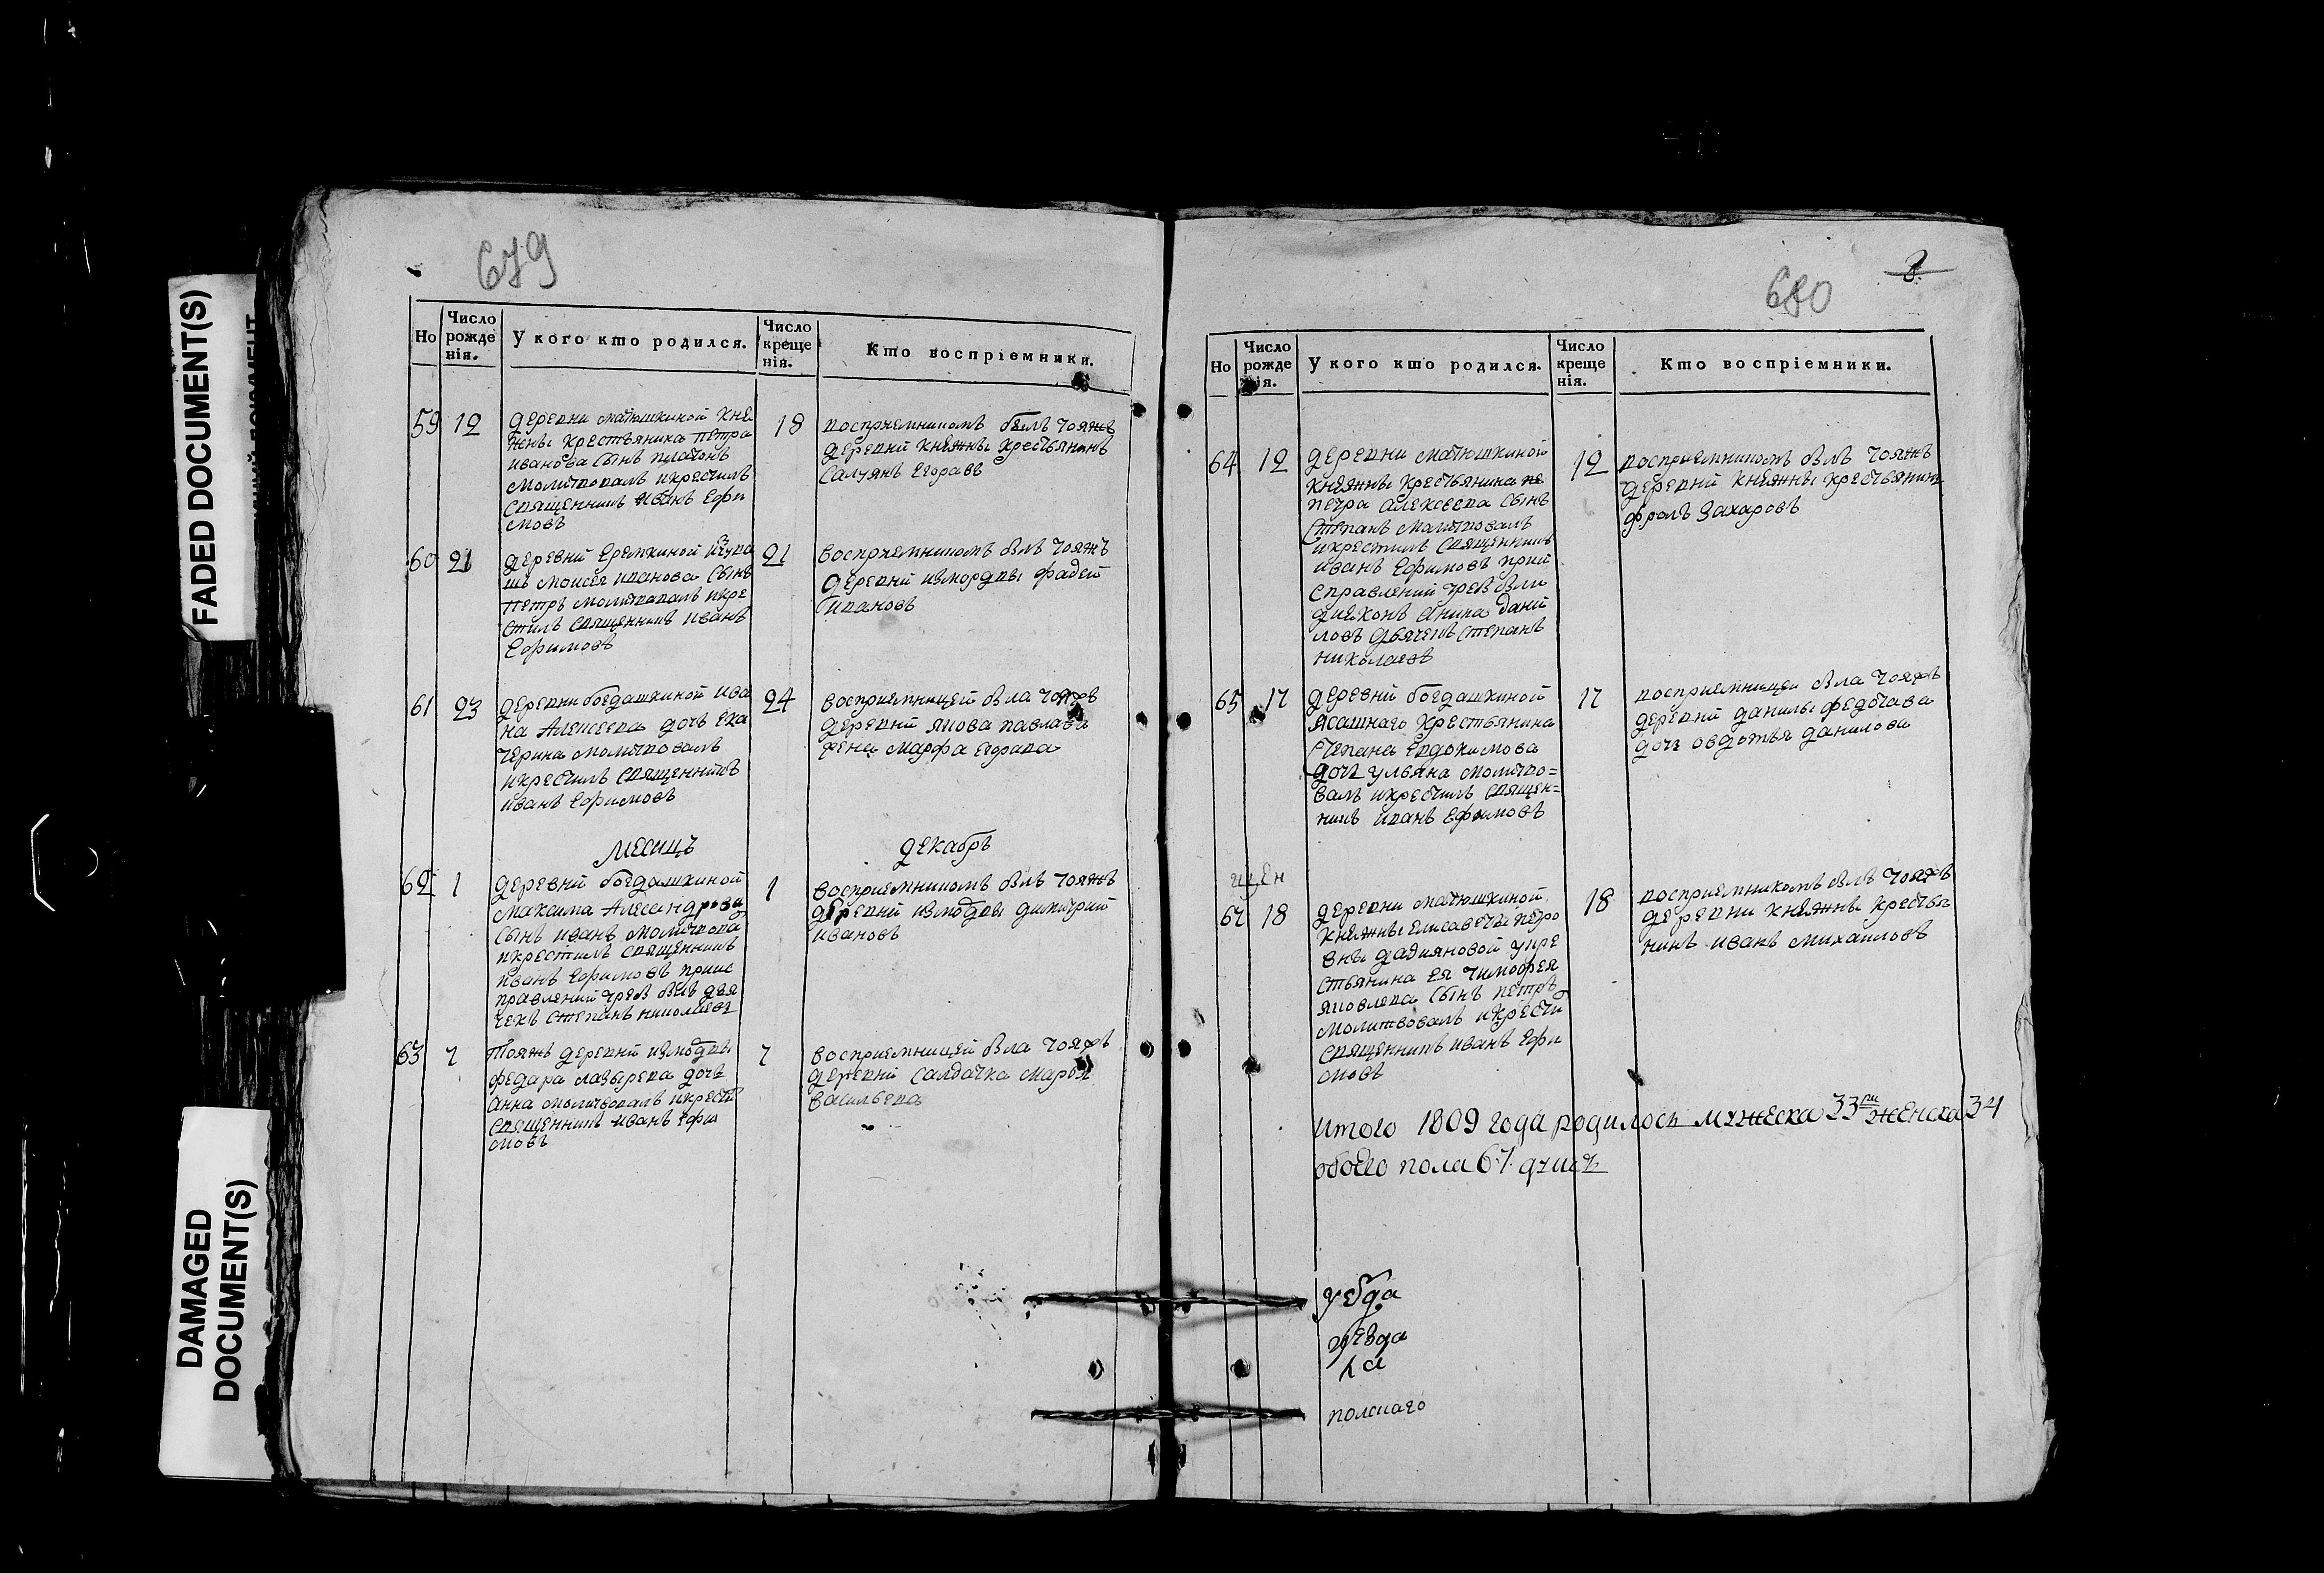 FADED DOCUMENT(S)
DAMAGED
DOCUMENT(S)
679
Но
Число
рожде
нія.
У кого кто родился.
Число
креще
нія.
Кто воспріемники.
59 12
деревни матюшкиной кня
жны крестьянина петра
иванова сынъ платонъ
молитвовалъ икрестилъ
священникъ иванъ ефи
мовъ
18
восприемникомъ былъ тояжъ
деревни княжны крестьянинъ
Егоравъ
60 21
деревни Еремкиной
моисея иванова сынъ
петръ молитвовалъ икре
стилъ священникъ иванъ
Ефимовъ
21
восприемникомъ былъ тояжъ
деревни измордвы фадей
ивановъ
61 23
деревни богдашкиной ива
на Алексеева дочь ека
терина молитвовалъ
икрестилъ священникъ
иванъ Ефимовъ
24
восприемницей была тояжъ
деревни якова павлова
жена марфа
месяцъ
декабръ
62 1
деревни богдашкиной
максима Алесандрова
сынъ иванъ молитвова
икрестилъ священникъ
иванъ Ефимовъ приис
правлении треб былъ дья
чекъ степанъ николаевъ
1
восприемникомъ былъ тояжъ
деревни измордвы димитрий
ивановъ
63 7
Тояжъ деревни измордвы
федара лазырева дочь
анна молитвовалъ икрести
священникъ иванъ ефи
мовъ
7
восприемницей была тояжъ
деревни салдатка марья
васильева
680
8
Но
Число
рожде
нія.
У кого кто родился.
Число
креще
нія.
Кто воспріемники.
64 12
деревни матюшкиной
княжны крестьянина пе
петра алексеева сынъ
степанъ молитвовалъ
икрестилъ священникъ
иванъ Ефимовъ прии
справлении треб были
диаконъ аника дани
ловъ дьячекъ степанъ
николаевъ
12
восприемникомъ былъ тояжъ
деревни княжны крестьянинъ
фролъ Захаровъ
65 17
деревни богдашкиной
ясашнаго крестьянина
степана Евдокимова
дочь ульяна молитво=
валъ икрестилъ священ=
никъ иванъ Ефимовъ
17
восприемницеи была тояжъ
деревни данилы федотава
дочь овдотья данилова
67 18
деревни матюшкиной
княжны елисаветы петро
вны дадияновой укре
стьянина ея тимофея
яковлева сынъ петръ
молитвовалъ икрести
священникъ иванъ Ефи
мовъ
18
восприемникомъ былъ тояжъ
деревни княжны крестья
нинъ иванъ михаиловъ
итого 1809 года родилось мужеска 33 женска 34
обоего пола 67 душъ